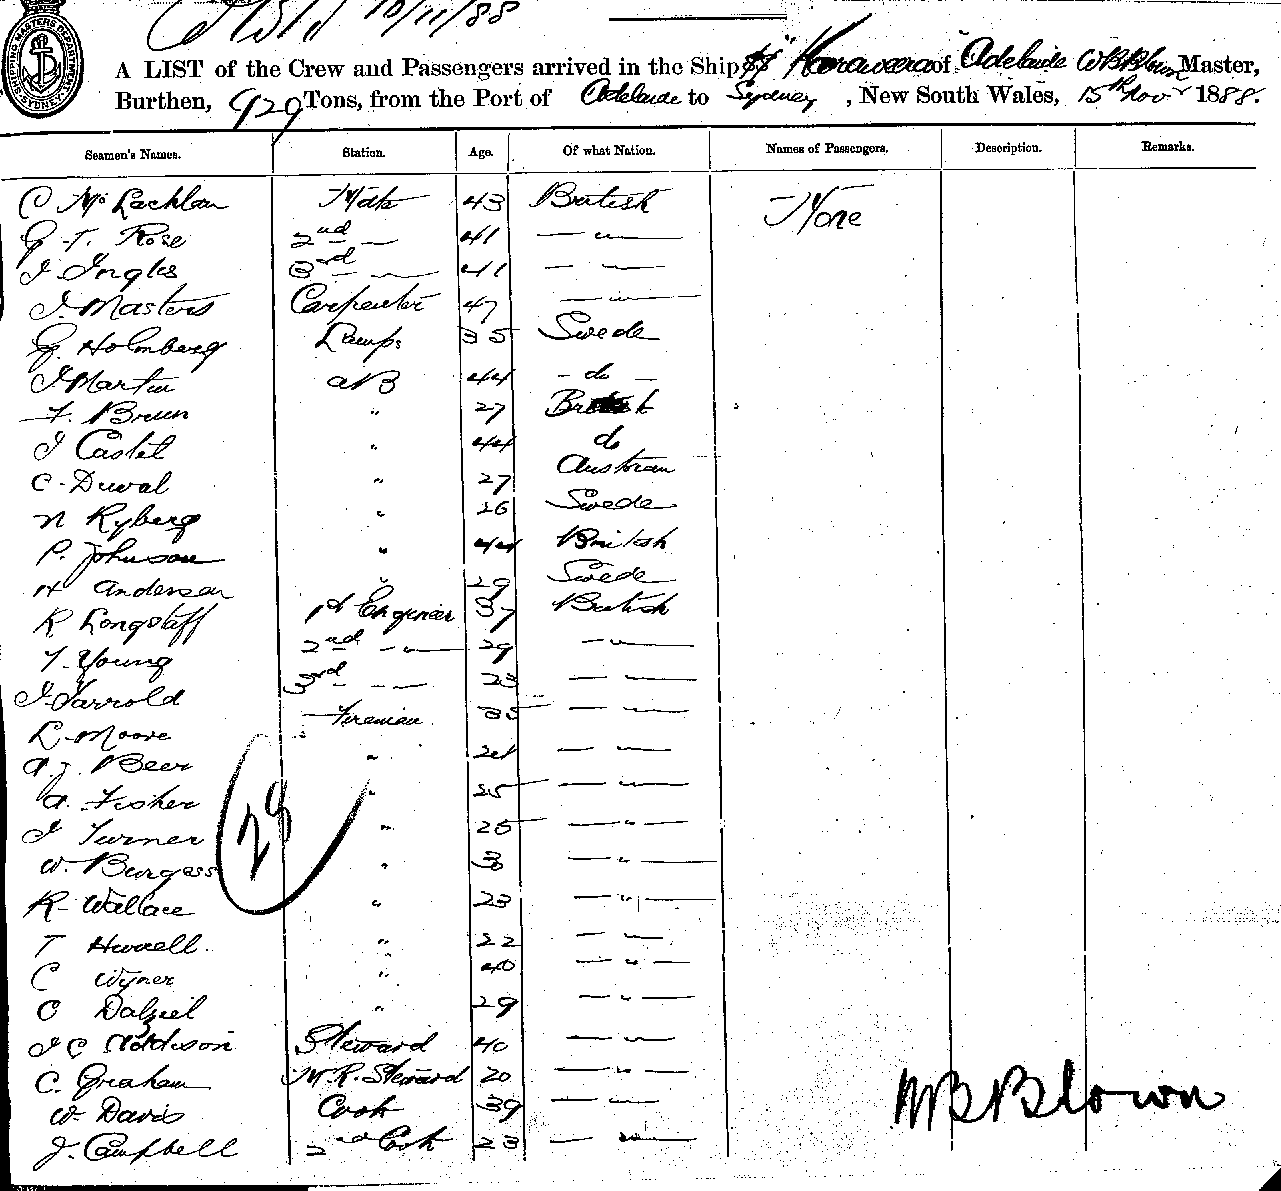 10/11/88
A LIST of the Crew and Passengers arrived in the Ship SS "Konoowarra of Adelaide W B Blown Master,
Burthen, 929 Tons, from the Port of Adelaide to Sydney, New South Wales, 15th Novr 1888.
Seamen's Names. Station. Age. Of what Nation. Names of Passengers. Description. Remarks.
McLachlan Mate 43 British None
G. T. Rose 2nd — 41 — " —
J Ingles 3rd — — 41 — —
J. Masters Carpenter 47 — " —
G. Holmberg Lamps 35 Swede
J Martin AB 44 - do -
F. Bruun " 27
J Castel " 44 do
C. Duval " 27 Austrian
N Ryberg " 26 Swede
P. Johnson " 44 British
H Anderson " 29 Swede
R Longstaff 1st Engineer 37 British
T. Young 2nd - " - 29 — " —
J. Jarrold 3rd — — 23 — " —
L. Moore Fireman 35 — " —
A. J. Beer " 24 — " —
A. Fisher " 25 — " —
J Turner " 25 — " —
W. Burgess " — " —
R Wallace " 23 — " —
T Hurrell " 22 — " —
C Wyner " 40 — " —
C Dalziel " 29 — " —
J C Addison Steward 40 — " —
C. Graham M.R. Steward 20 — " —
W. Davis Cook 39 — " —
J. Campbell 2nd Cook 23 — " —
W B Blown